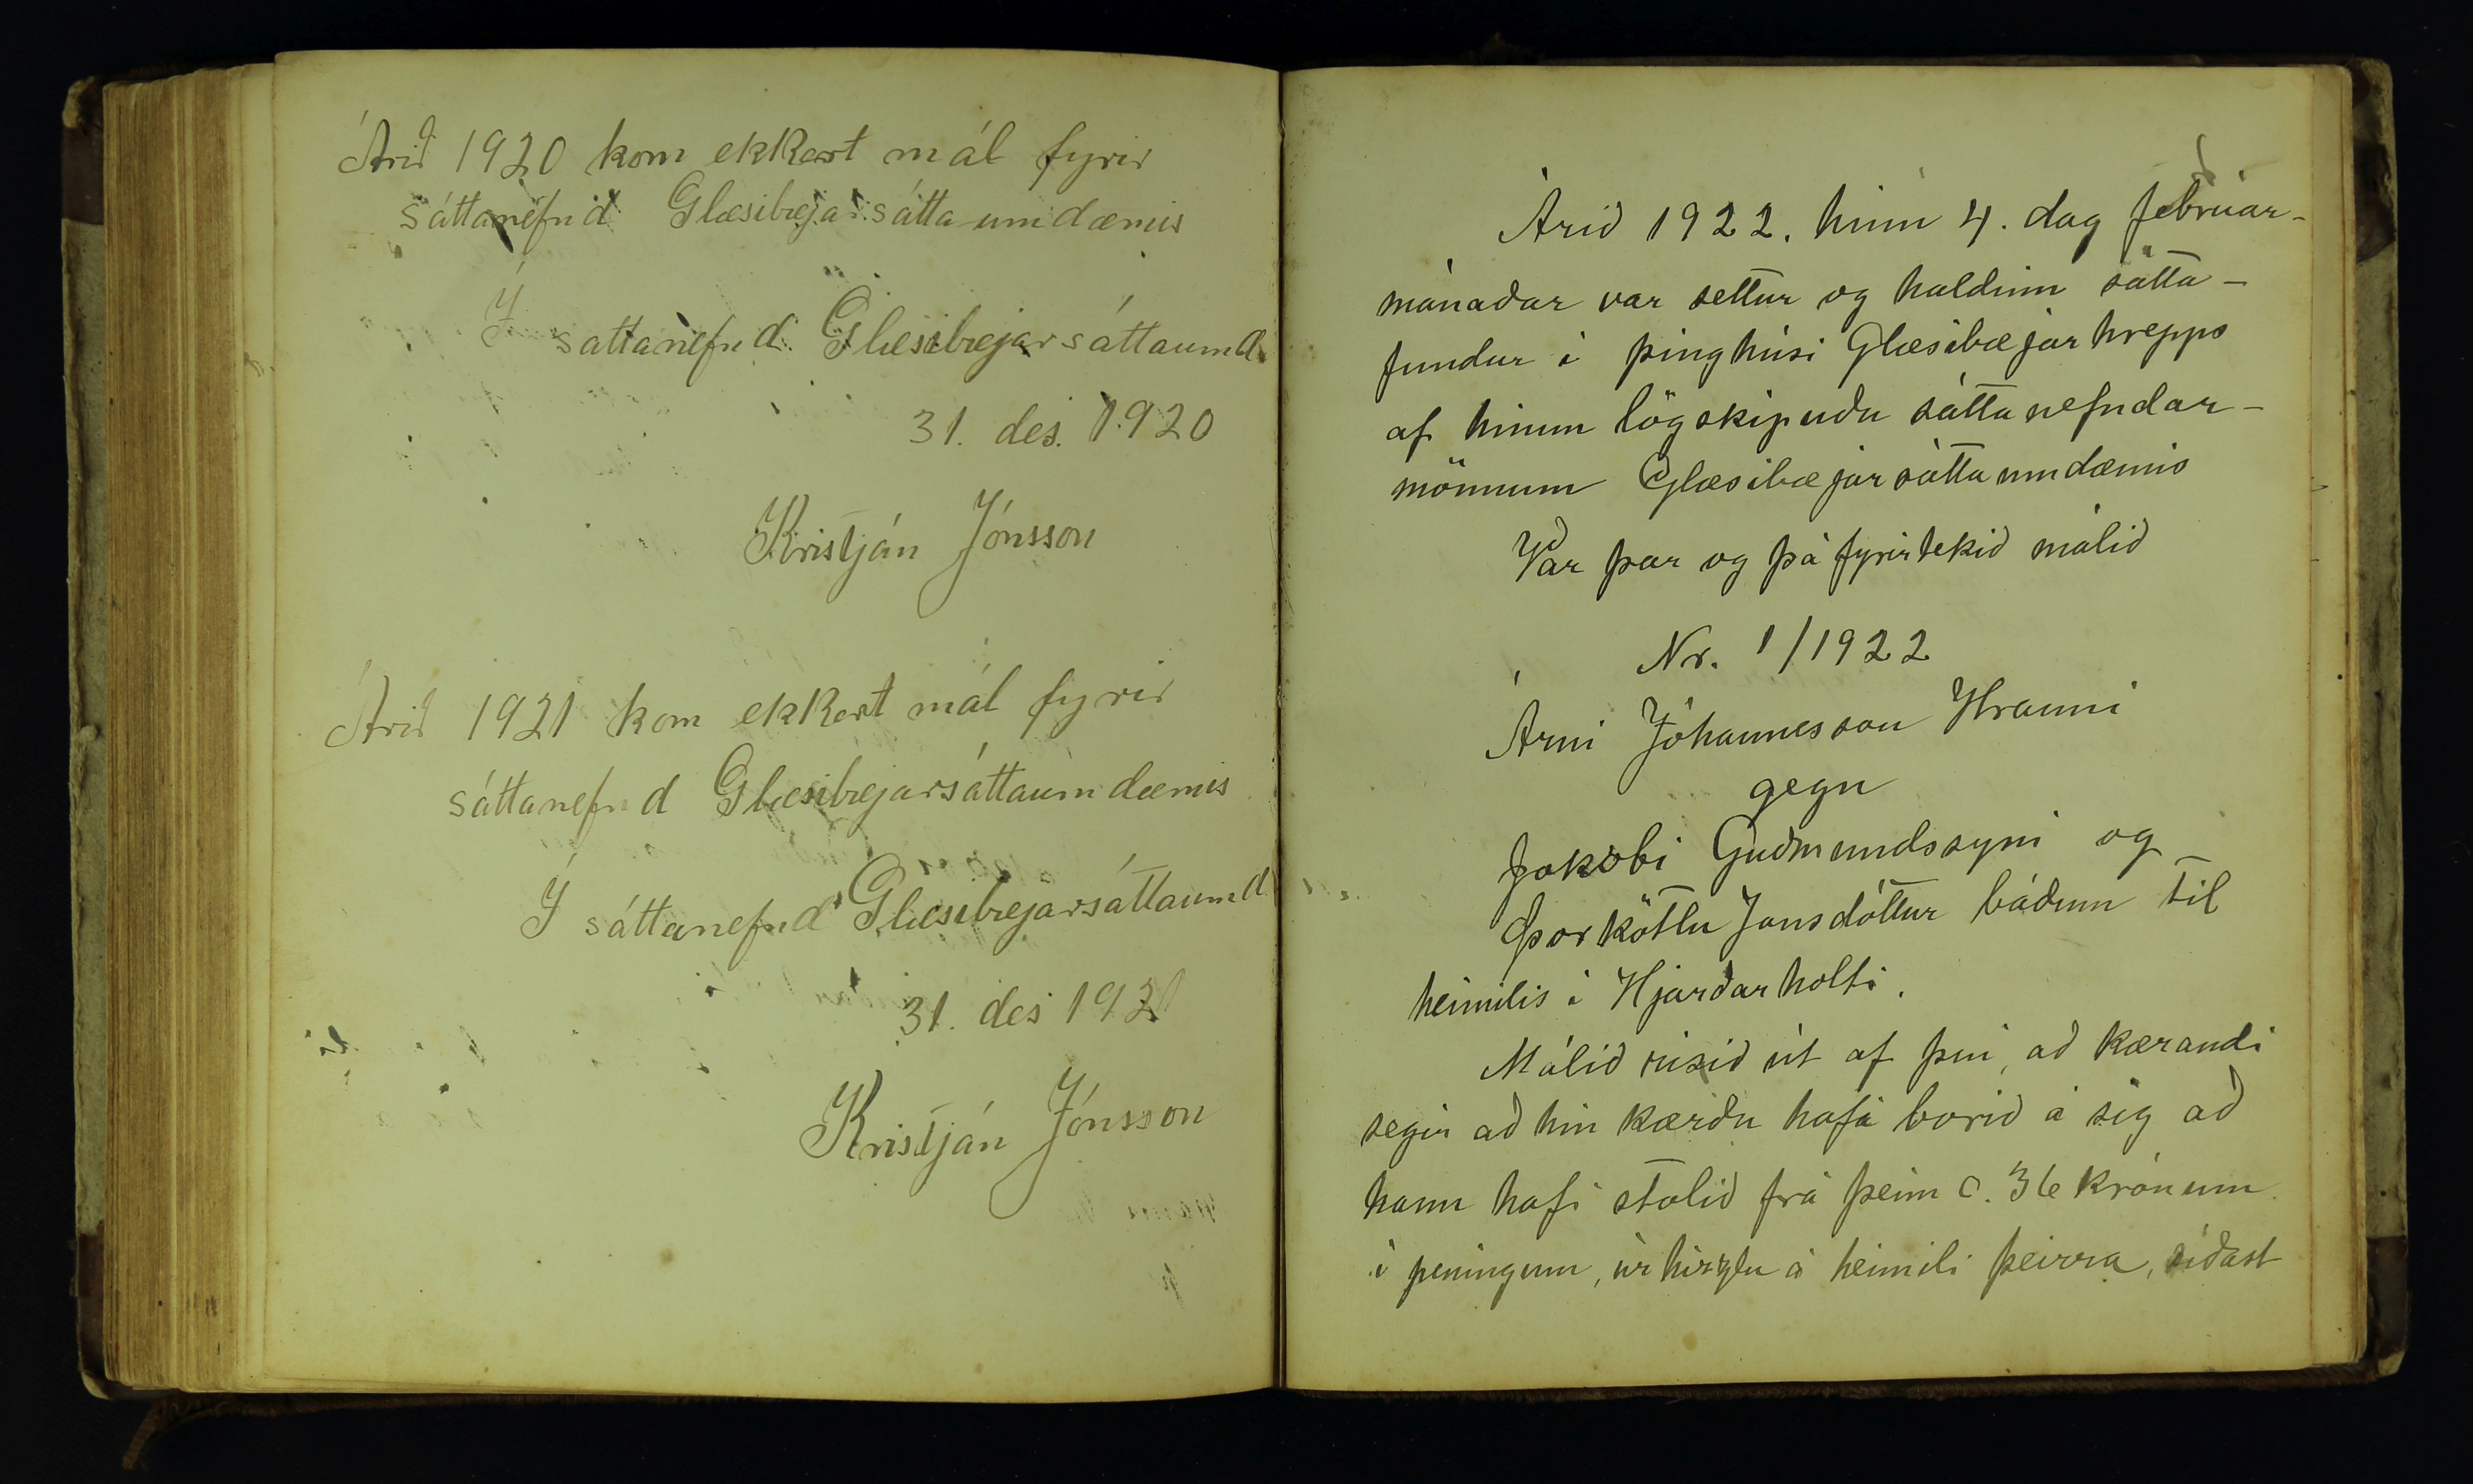 Árið 1920 kom ekkert mál fyrir
sáttanefnd Glæsibæjarsáttaumdæmis
Í sáttanefnd Glæsibæjarsáttaumd.
31. des. 1920
Kristján Jónsson
Árið 1921 kom ekkert mál fyrir
sáttanefnd Glæsibæjarsáttaumdæmis
Í sáttanefnd Glæsibæjarsáttaumd
31. des 1921
Kristján Jónsson
Árið 1922. hinn 4. dag febrúar-
mánaðar var settur og haldinn sátta-
fundur í þinghúsi Glæsibæjarhrepps
af hinum lögskipuðu sáttanefndar-
mönnum Glæsibæjarsáttaumdæmis
Var þar og þá fyrirtekið málið
Nr. 1/1922
Árni Jóhannesson Hrauni
gegn
Jakobi Guðmundssyni og
Þorkötlu Jónsdóttur báðum til
heimilis í Hjarðarholti.
Málið risið út af því, að kærandi
segir að hin kærðu hafi borið á sig að
hann hafi stolið frá þeim c. 36 krónum
í peningum, úr hirzlu á heimili þeirra, síðast